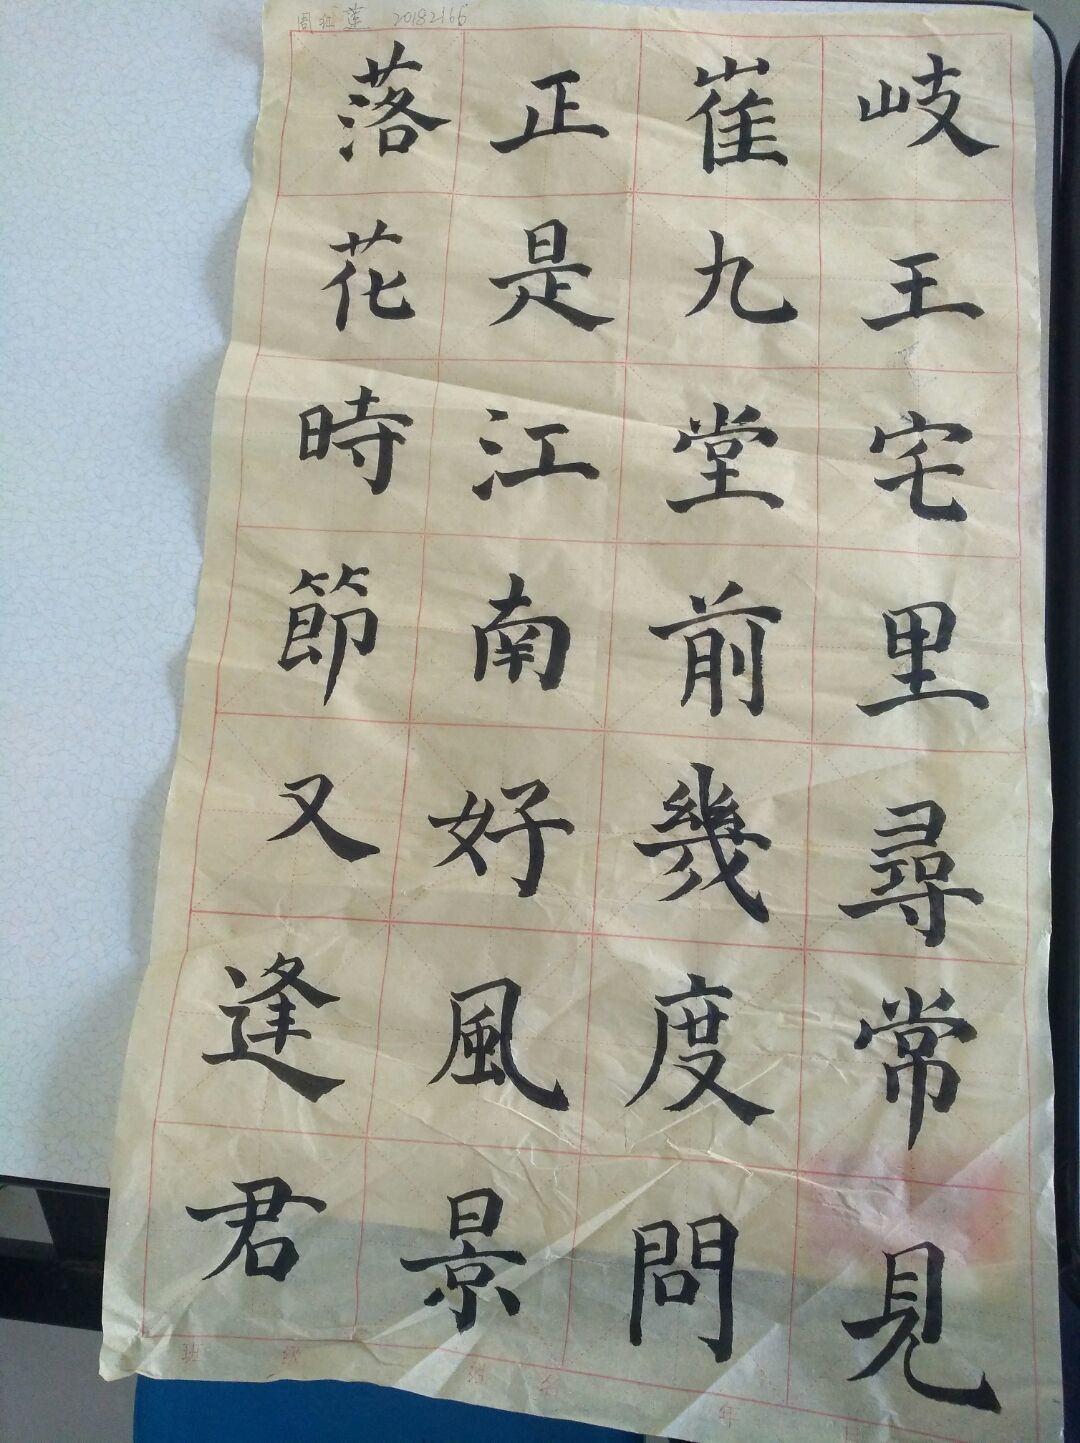 岐王宅里尋常見
崔九堂前幾度問
正是江南好風景
落花時節又逢君
20182166
班 級
姓 名
年